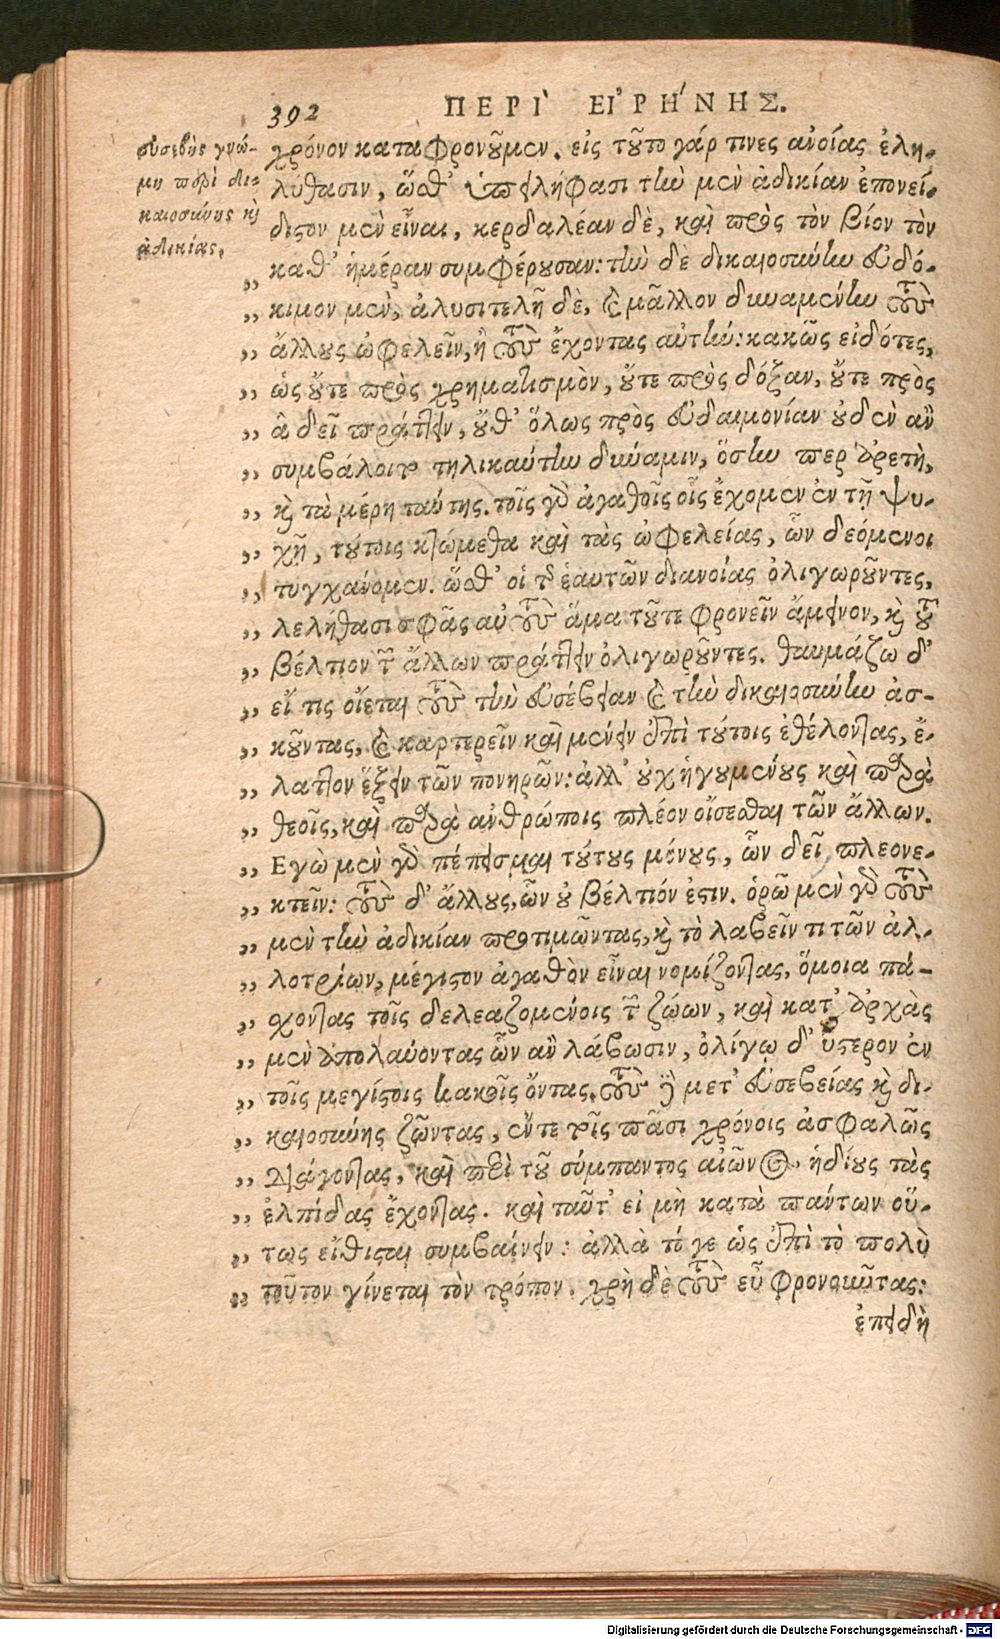 392 ΠΕΡῚ ΕἸΡΉΝΗΣ.
εὐσεβὴς γνώ-
μη περὶ δι-
καιοσύνης καὶ
ἀδικίας.
χρόνον καταφρονοῦμεν. εἰς τοῦτο γάρ τινες ἀνοίας ἐλη-
λύθασιν, ὥσθ' ὑπειλήφασι τὴν μὲν ἀδικίαν ἐπονεί-
διστον μὲν εἶναι, κερδαλέαν δὲ, καὶ πρὸς τὸν βίον τὸν
,, καθ' ἡμέραν συμφέρουσαν: τὴν δὲ δικαιοσύνην εὐδό-
,, κιμον μὲν, ἀλυσιτελῆ δὲ, καὶ μᾶλλον δυναμένην τοὺς
,, ἄλλους ὠφελεῖν, ἢ τοὺς ἔχοντας αὐτήν: κακῶς εἰδότες,
,, ὡς οὔτε πρὸς χρηματισμὸν, οὔτε πρὸς δόξαν, οὔτε πρὸς
,, ἃ δεῖ πράττειν, οὔθ' ὅλως πρὸς εὐδαιμονίαν οὐδὲν ἂν
,, συμβάλοιτο τηλικαύτην δύναμιν, ὅσην περ ἀρετὴ,
,, καὶ τὰ μέρη ταύτης. τοῖς γὰρ ἀγαθοῖς οἷς ἔχομεν ἐν τῇ ψυ-
,, χῇ, τούτοις κτώμεθα καὶ τὰς ὠφελείας, ὧν δεόμενοι
,, τυγχάνομεν. ὥσθ' οἱ τῆς ἑαυτῶν διανοίας ὀλιγωροῦντες,
,, λελήθασι σφᾶς αὐτοὺς ἅμα τοῦτε φρονεῖν ἄμεινον, καὶ τοῦ
,, βέλτιον τῶν ἄλλων πράττειν ὀλιγωροῦντες. θαυμάζω δ'
,, εἴ τις οἴεται τοὺς τὴν εὐσέβειαν καὶ τὴν δικαιοσύνην ἀσ-
,, κοῦντας, καὶ καρτερεῖν καὶ μένειν ἐπὶ τούτοις ἐθέλοντας, ἔ-
,, λαττον ἕξειν τῶν πονηρῶν: ἀλλ' οὐχ ἡγουμένους καὶ παρὰ
,, θεοῖς, καὶ παρὰ ἀνθρώποις πλέον οἴσεσθαι τῶν ἄλλων.
,, Εγὼ μὲν γὰρ πέπεισμαι τούτους μόνους, ὧν δεῖ, πλεονε-
,, κτεῖν: τοὺς δ' ἄλλους, ὧν οὐ βέλτιόν ἐστιν. ὁρῶ μὲν γὰρ τοὺς
,, μὲν τὴν ἀδικίαν προτιμῶντας, καὶ τὸ λαβεῖν τι τῶν ἀλ-
,, λοτρίων, μέγιστον ἀγαθὸν εἶναι νομίζοντας, ὅμοια πά-
,, σχοντας τοῖς δελεαζομένοις τῶν ζώων, καὶ κατ' ἀρχὰς
,, μὲν ἀπολαύοντας ὧν ἂν λάβωσιν, ὀλίγῳ δ' ὕστερον ἐν
,, τοῖς μεγίστοις κακοῖς ὄντας. τοὺς δὲ μετ' εὐσεβείας καὶ δι-
,, καιοσύνης ζῶντας, ἔντε τοῖς πᾶσι χρόνοις ἀσφαλῶς
,, διάγοντας, καὶ περὶ τοῦ σύμπαντος αἰῶνος ἡδίους τὰς
,, ἐλπίδας ἔχοντας. καὶ ταῦτ' εἰ μὴ κατὰ πάντων οὕ-
,, τως εἴθισται συμβαίνειν: ἀλλὰ τό γε ὡς ἐπὶ τὸ πολὺ
,, τοῦτον γίνεται τὸν τρόπον. χρὴ δὲ τοὺς εὖ φρονοῦντας:
ἐπειδὴ
Digitalisierung gefördert durch die Deutsche Forschungsgemeinschaft - DFG